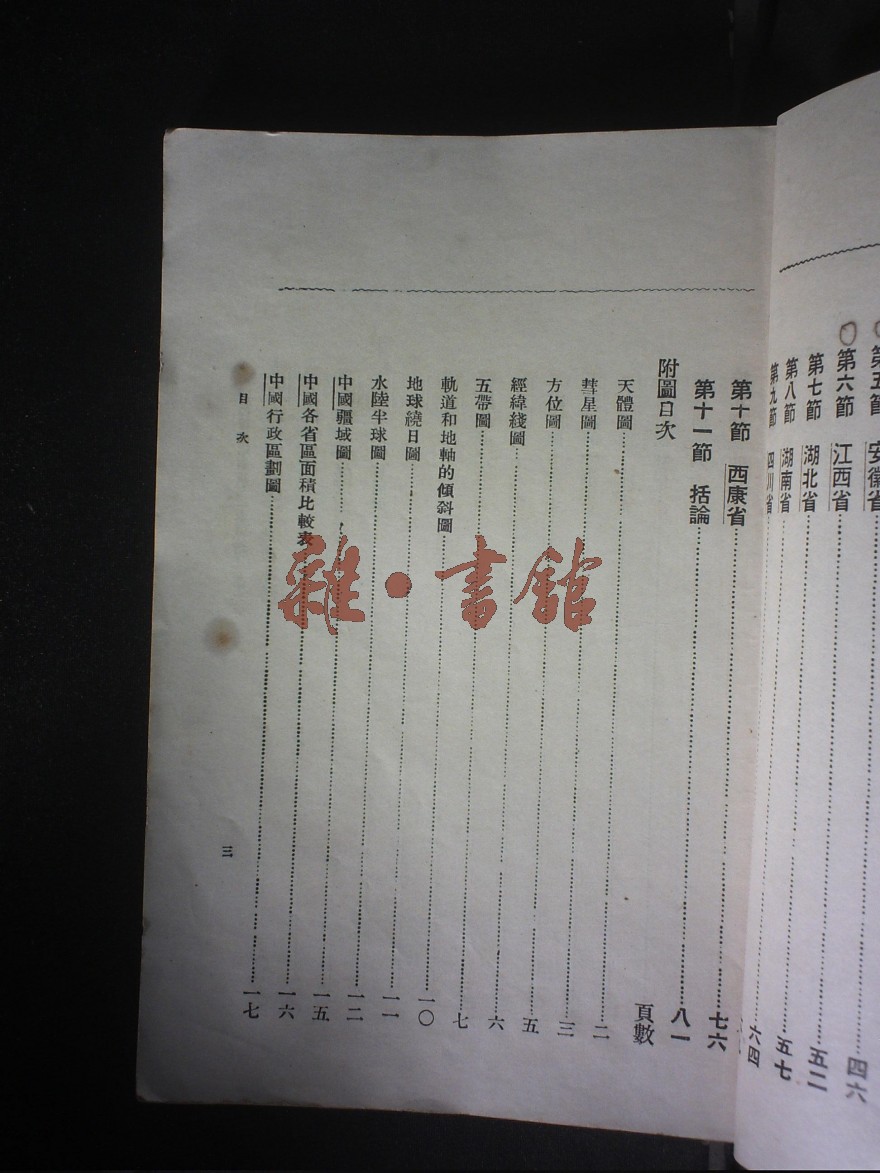 第五節 安徽省……四六
第六節 江西省……五二
第七節 湖北省……五七
第八節 湖南省……六四
第九節 四川省……
第十節 西康省……七六
第十一節 括論……八一
附圖目次 頁數
天體圖……二
彗星圖……三
方位圖……五
經緯綫圖……六
五帶圖……七
軌道和地軸的傾斜圖……一〇
地球繞日圖……一一
水陸半球圖……一二
中國疆域圖……一五
中國各省區面積比較表……一六
中國行政區劃圖……一七
目次 三
雜·書館